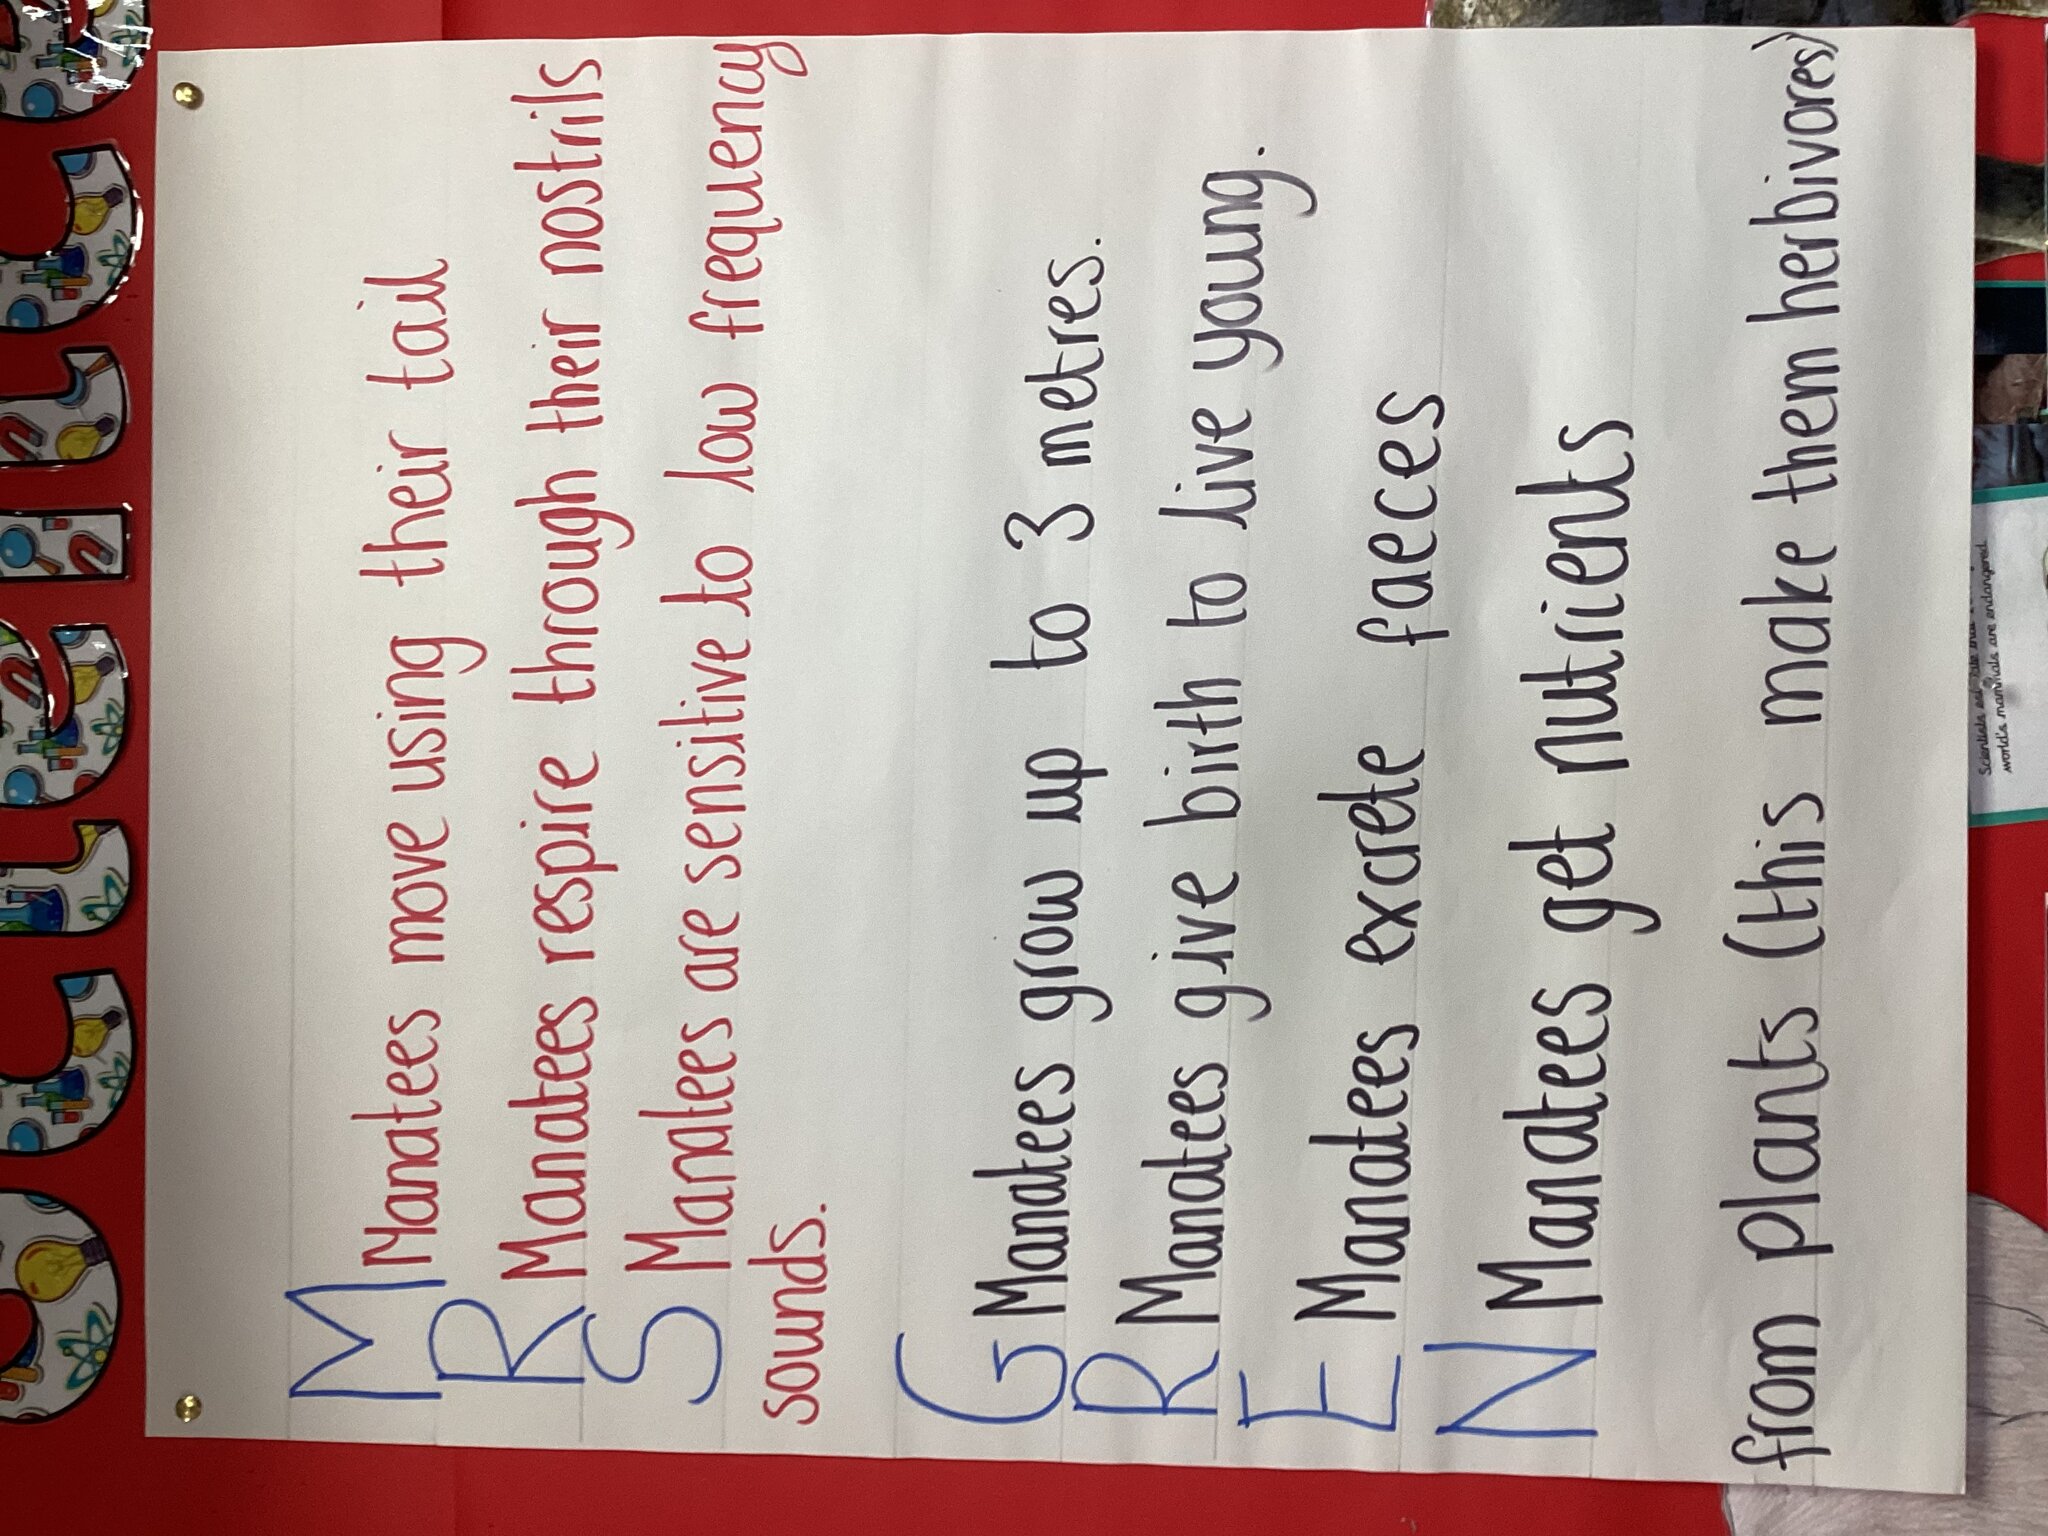 Science
M Manatees move using their tail
R Manatees respire through their nostrils
S Manatees are sensitive to low frequency
sounds.
G Manatees grow up to 3 metres.
R Manatees give birth to live young.
E Manatees excrete faeces
N Manatees get nutrients
from plants (this make them herbivores)
Scientists that
world's mammals are endangered.